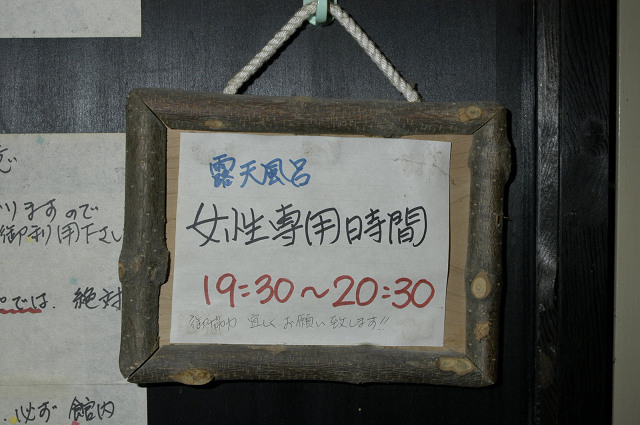 露天風呂
女性専用時間
19:30〜20:30
御協力 宜しくお願い致します!!
りますので
御利用下さい
では、絶対
必ず 館内